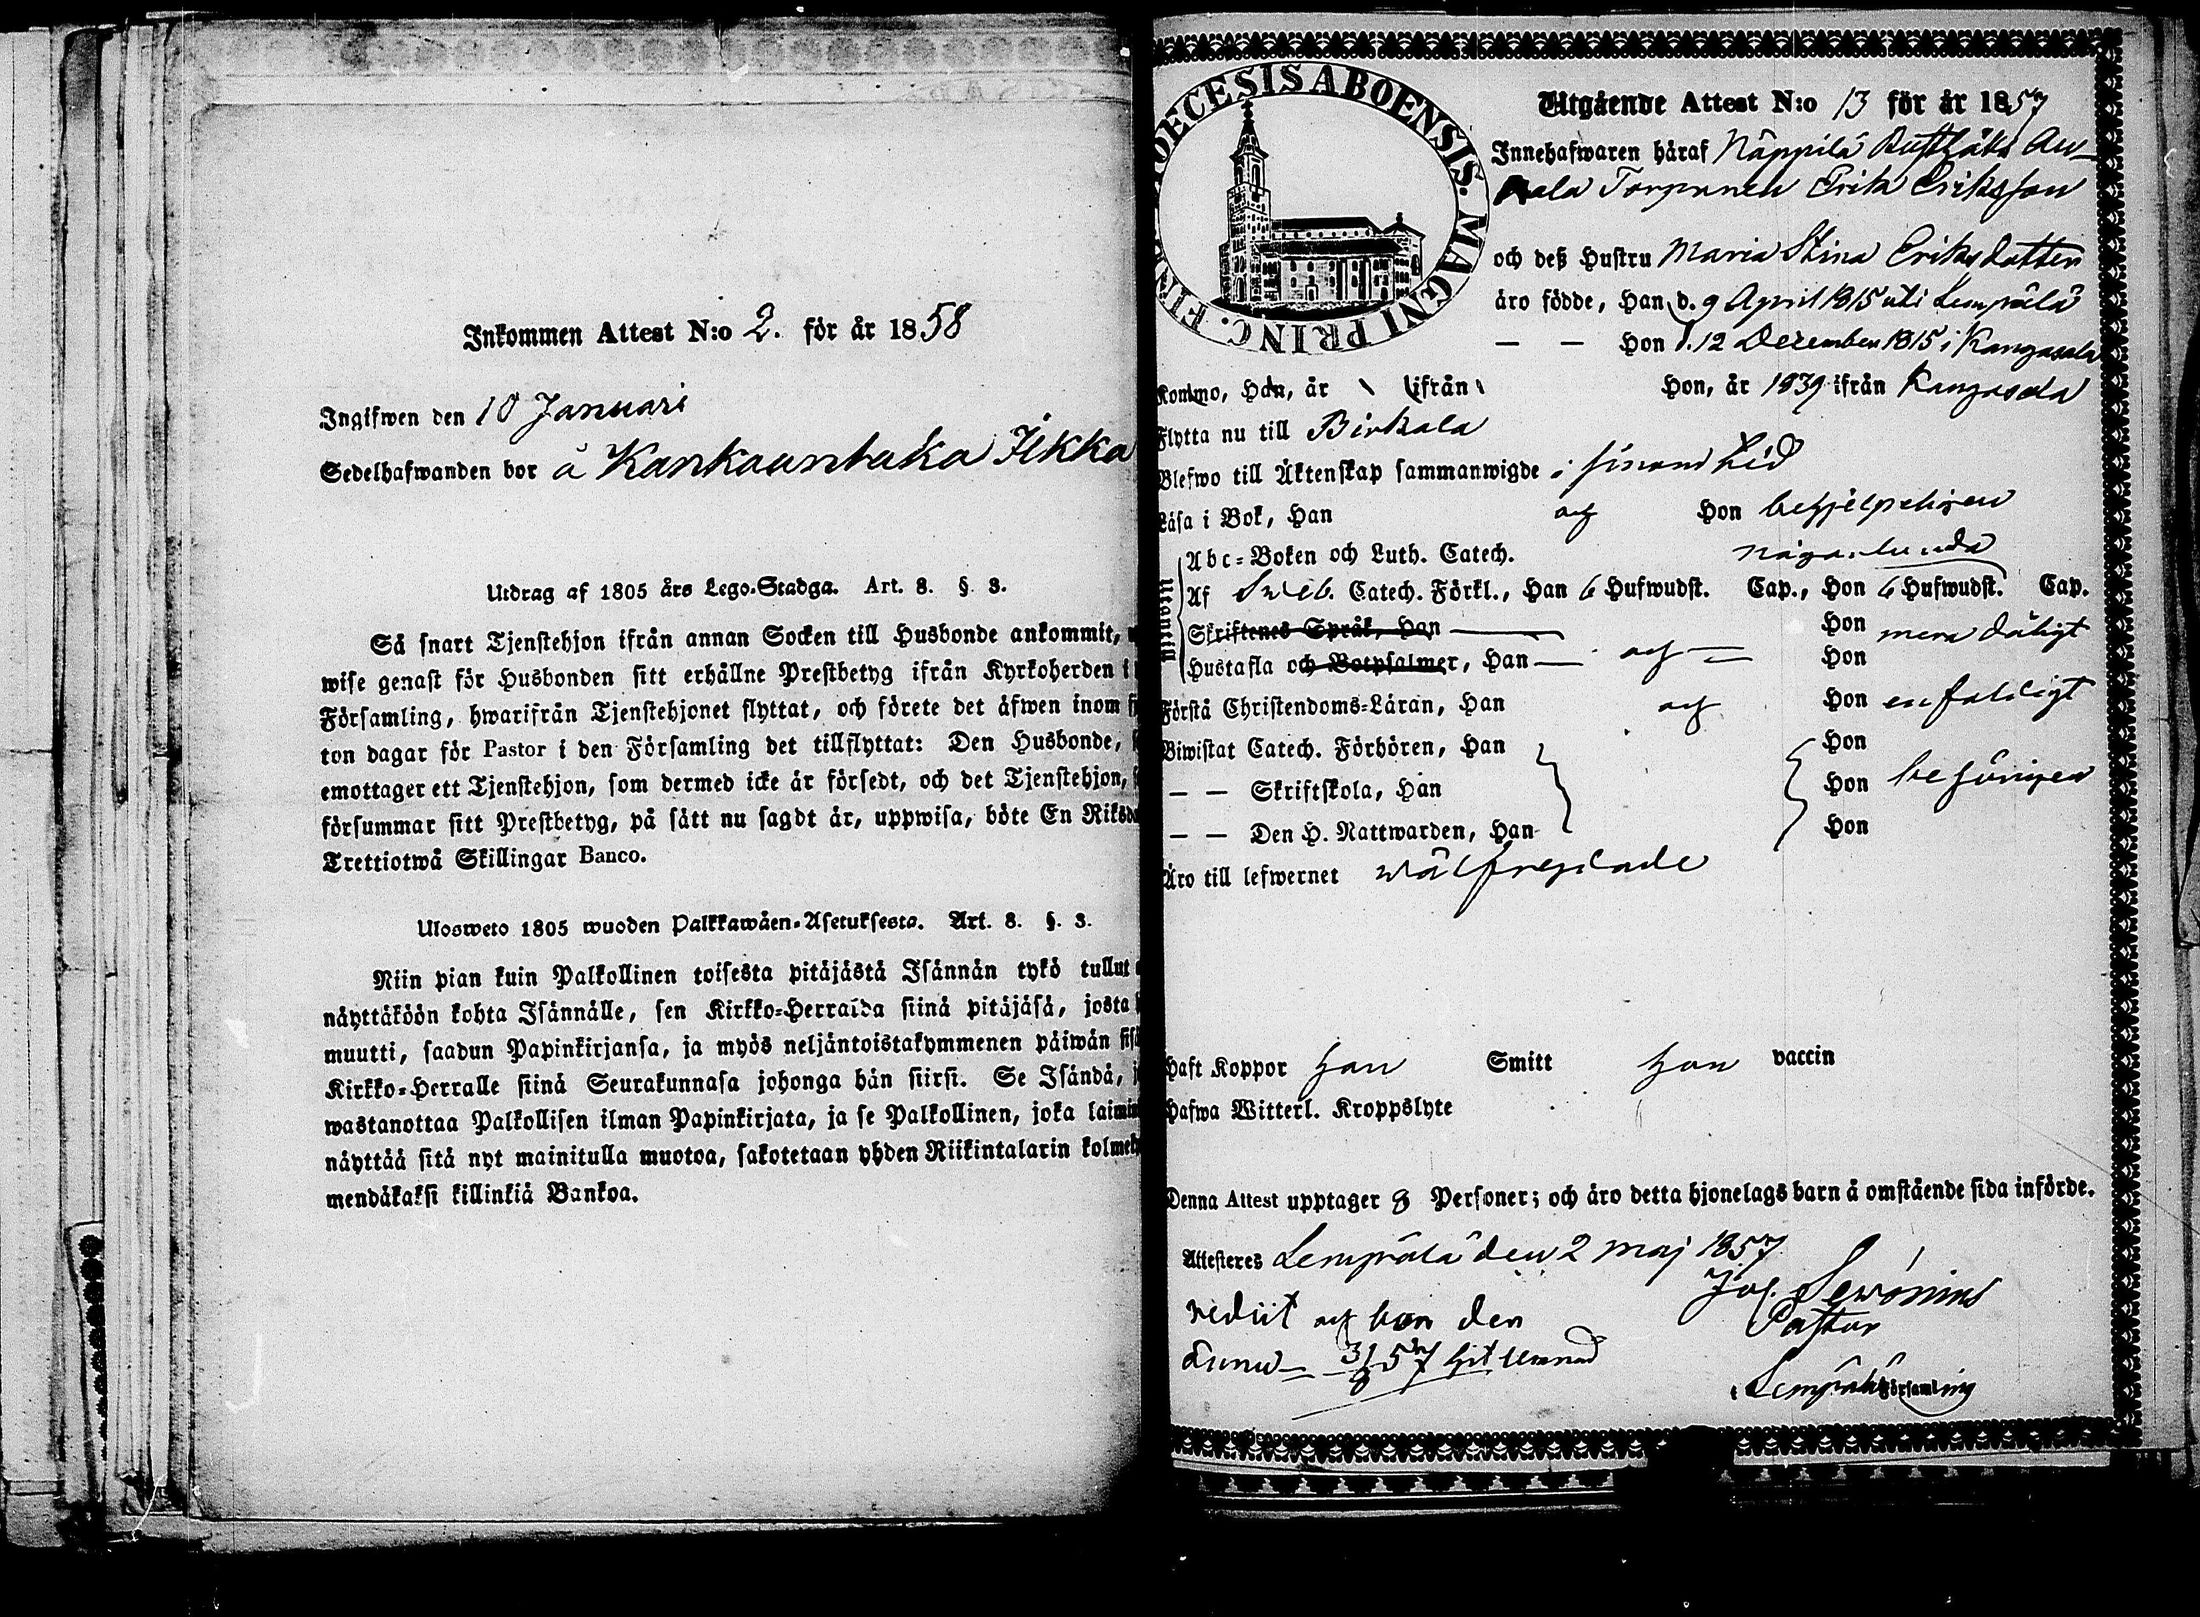 Inkommen Attest N:o 2. för år 1858
Ingifwen den 10 Januari
Sedelhafwanden bor å Kankaantaka Ilkka
Utdrag af 1805 års Lego-Stadga. Art. 8. §. 3.
Så snart Tjenstehjon ifrån annan Socken till Husbonde ankommit,
wise genast för Husbonden sitt erhållne Prestbetyg ifrån Kyrkoherden i
Församling, hwarifrån Tjenstehjonet flyttat, och förete det äfwen inom
ton dagar för Pastor i den Församling det tillflyttat: Den Husbonde,
emottager ett Tjenstehjon, som dermed icke är försedt, och det Tjenstehjon,
försummar sitt Prestbetyg, på sätt nu sagdt är, uppwisa, böte En Riksd
Trettiotwå Skillingar Banco.
Ulosweto 1805 wuoden Palkkawäen-Asetuksesta. Art. 8. §. 3.
Niin pian kuin Palkollinen toisesta pitäjästä Isännän tykö tullut
näyttäköön kohta Isännälle, sen Kirkko-Herralda siinä pitäjäsä, josta
muutti, saadun Papinkirjansa, ja myös neljäntoistakymmenen päiwän sis
Kirkko-Herralle siinä Seurakunnasa johonga hän siirsi. Se Isändä,
wastanottaa Palkollisen ilman Papinkirjata, ja se Palkollinen, joka laimin
näyttää sitä nyt mainitulla muotoa, sakotetaan yhden Riikintalarin kolmeky
mendäkaksi killinkiä Bankoa.
DIOECESIS ABOENSIS. MAGNI PRINC. FIN
Utgående Attest N:o 13 för år 1857
Innehafwaren häraf Näppilä Rusthålls Au-
Torparen Erik Eriksson
och deß Hustru Maria Stina Eriksdotter
äro födde, Han d. 9 April 1815 uti Lempälä
— — Hon d. 12 December 1815 i Kangasala
Kommo, Han, år ifrån Hon, år 1839 ifrån Kangasala
Flytta nu till Birkala
Blefwo till Äktenskap sammanwigde i sinom tid
Läsa i Bok, Han och Hon behjelpligen
Utantill
Abc-Boken och Luth. Catech. någorlunda
Af Sweb. Catech. Förkl., Han 6 Hufwudst. Cap., Hon 6 Hufwudst. Cap.
Skriftenes Språk, Han — Hon mera dåligt
Hustafla och Botpsalmer, Han — och — Hon
Förstå Christendoms-Läran, Han och Hon enfaldigt
Biwistat Catech. Förhören, Han Hon
— — Skriftskola, Han Hon behörigen
— — Den H. Nattwarden, Han Hon
Äro till lefwernet wälfrejdade
Haft Koppor han Smitt hon vaccin
Hafwa Witterl. Kroppslyte
Denna Attest upptager 8 Personer; och äro detta hjonelags barn å omstående sida införde.
Attesteres Lempälä den 2 Maj 1857
Jos. Serónius
rediit och den
Pastor
31/8 57
Lempälä församling